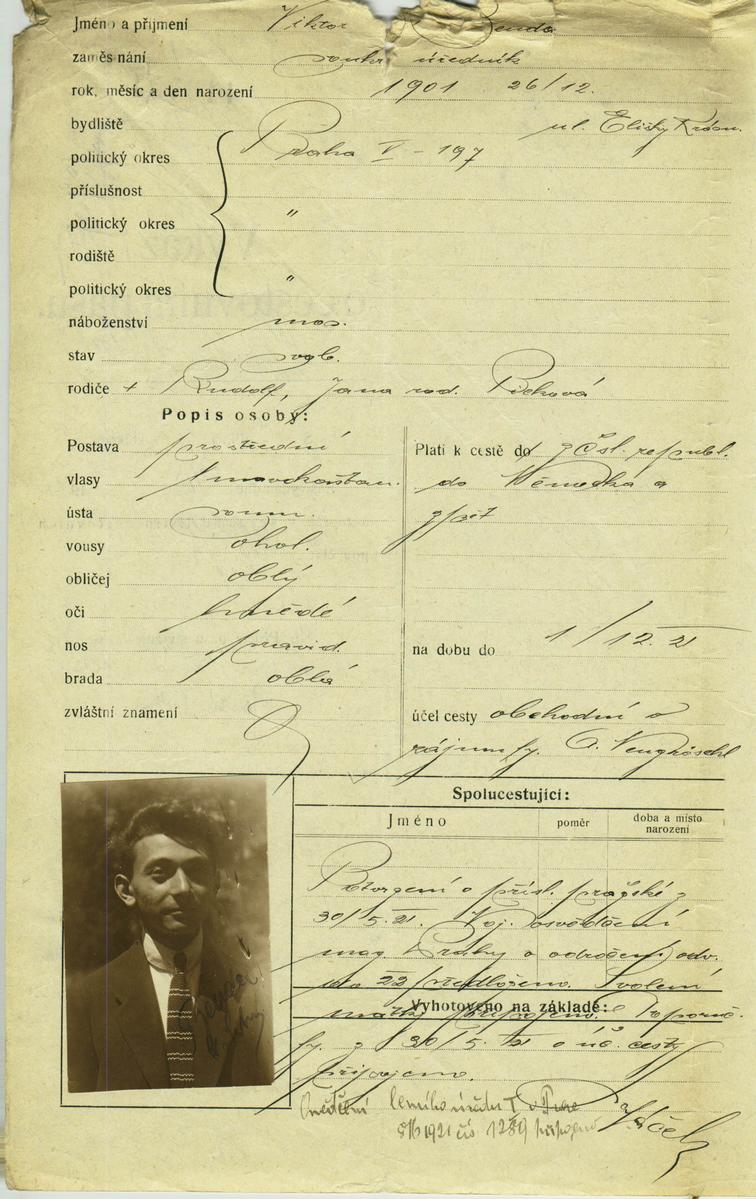 Jméno a příjmení Viktor Benda
zaměstnání soukr. úředník
rok, měsíc a den narození 1901 26/12.
bydliště ul. Elišky Krásn.
politický okres Praha V - 197
příslušnost
politický okres "
rodiště
politický okres "
náboženství mos.
stav svob.
rodiče + Rudolf, Jana roz. Picková
Popis osoby:
Postava prostřední
vlasy tmavokaštan.
ústa soum.
vousy ohol.
obličej oblý
oči hnědé
nos pravid.
brada oblá
zvláštní znamení
Platí k cestě do z Čsl. republ.
do Německa a
zpět
na dobu do 1/12. 21
účel cesty obchodní v
zájmu fy.
Spolucestující:
Jméno poměr doba a místo narození
Potvrzení o přísl. pražské z
30/5. 21. Voj. osvědčení
mag. Prahy o odročení odv.
do 22 předloženo. Svolení
matky připojeno.
Vyhotoveno na základě:
fy. z 30/5. 21 o úč. cesty
připojeno.
berního úřadu I v Praze
8/6 1921 čís 1289 připojeno